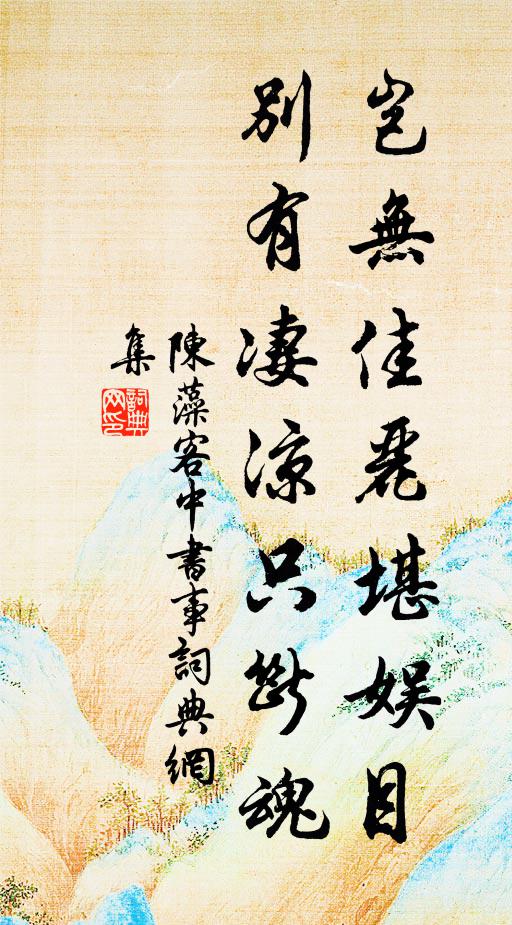 豈無佳麗堪娛目
別有淒涼只斷魂
陳藻客中書事詞典網
集
詞典
网印